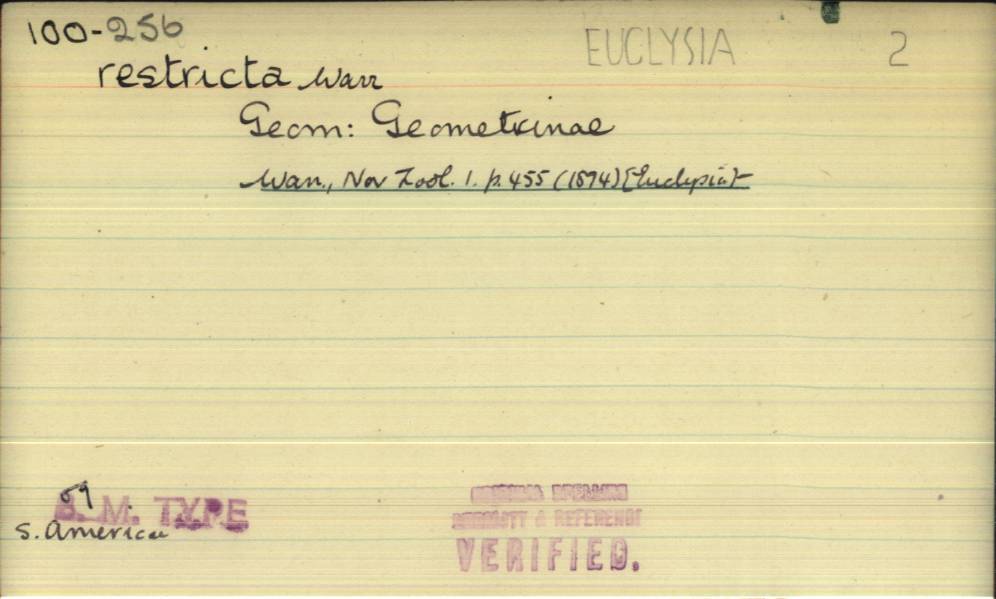 100-256
EUCLYSIA 2
restricta Warr
Geom: Geometrinae
Warr., Nov Zool. 1. p. 455 (1894) [Euclysia]-
B. M. TYPE
S. America
ORIGINAL SPELLING
& REFERENCE
VERIFIED.